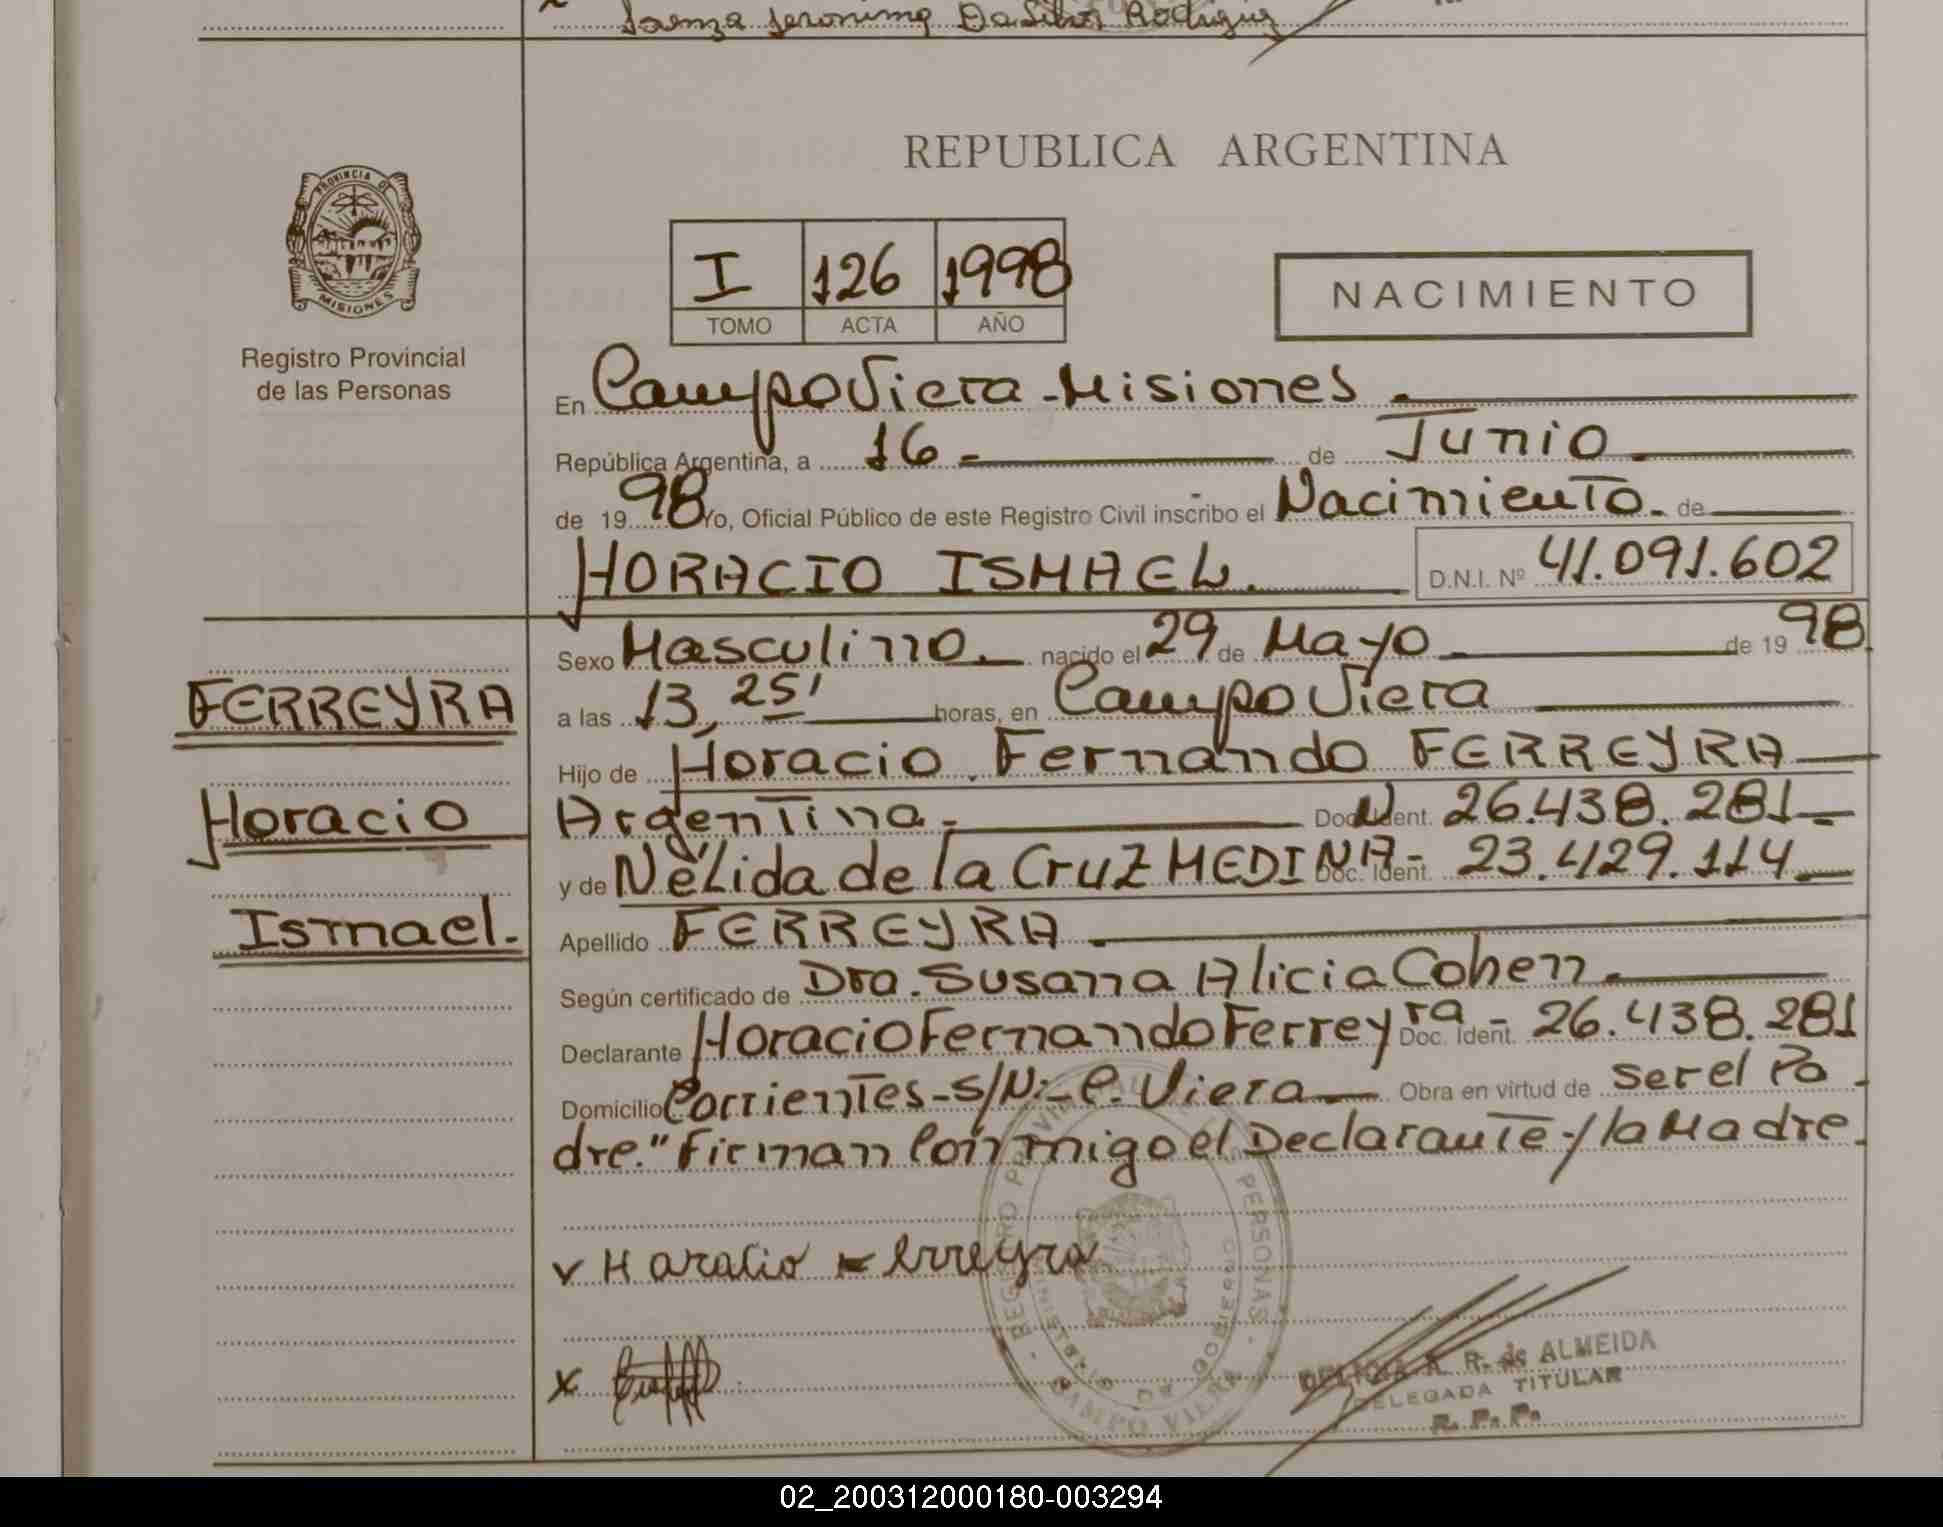 Jeronimo Da Silva Rodriguez
REPUBLICA ARGENTINA
PROVINCIA DE
MISIONES
Registro Provincial
de las Personas
I 126 1998
TOMO ACTA AÑO
NACIMIENTO
En Campo Viera - Misiones
República Argentina, a 16 - de Junio
de 1998 Yo, Oficial Público de este Registro Civil inscribo el Nacimiento. de
HORACIO ISMAEL. D.N.I. Nº 41.091.602
Sexo Masculino. nacido el 29 de Mayo de 1998
FERREYRA
a las 13,25' horas, en Campo Viera
Hijo de Horacio Fernando FERREYRA
Horacio
Argentina - Doc. Ident. 26.438.281 -
y de Nélida de la Cruz MEDINA - Doc. Ident. 23.429.114
Ismael.
Apellido FERREYRA
Según certificado de Dra. Susana Alicia Cohen.
Declarante Horacio Fernando Ferreyra - Doc. Ident. 26.438.281
Domicilio Corrientes - S/N: - C. Viera Obra en virtud de ser el Pa
dre." Firman Conmigo el Declarante y la Madre.
v Haracio Ferreyra
x
REGISTRO PROVINCIAL DE LAS PERSONAS
MINISTERIO DE GOBIERNO
CAMPO VIERA
R. de ALMEIDA
DELEGADA TITULAR
R.P.P.
02_200312000180-003294